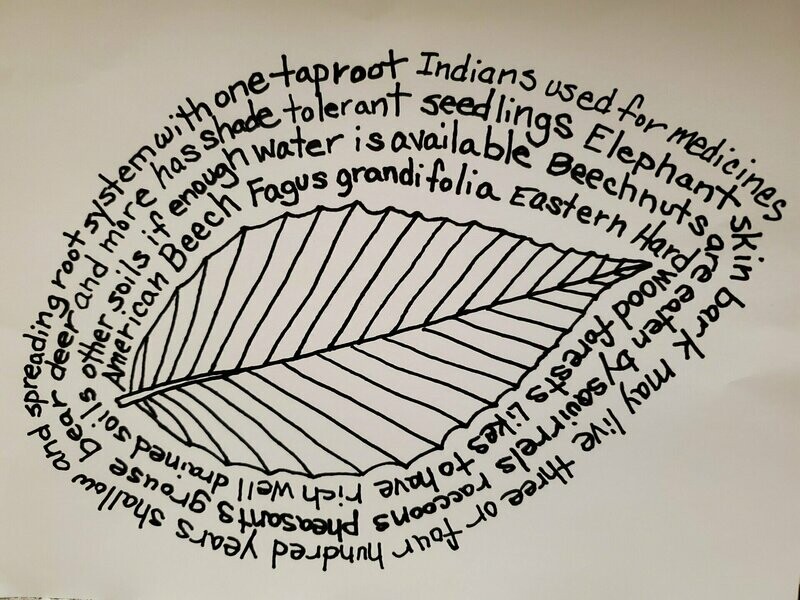 American Beech Fagus grandifolia Eastern Hardwood forests likes to have rich well drained soils
other soils if enough water is available Beechnuts are eaten by squirrels raccoons pheasants grouse bear deer
and more has shade tolerant seedlings Elephant skin bark may live three or four hundred years shallow and
spreading root system with one taproot Indians used for medicines